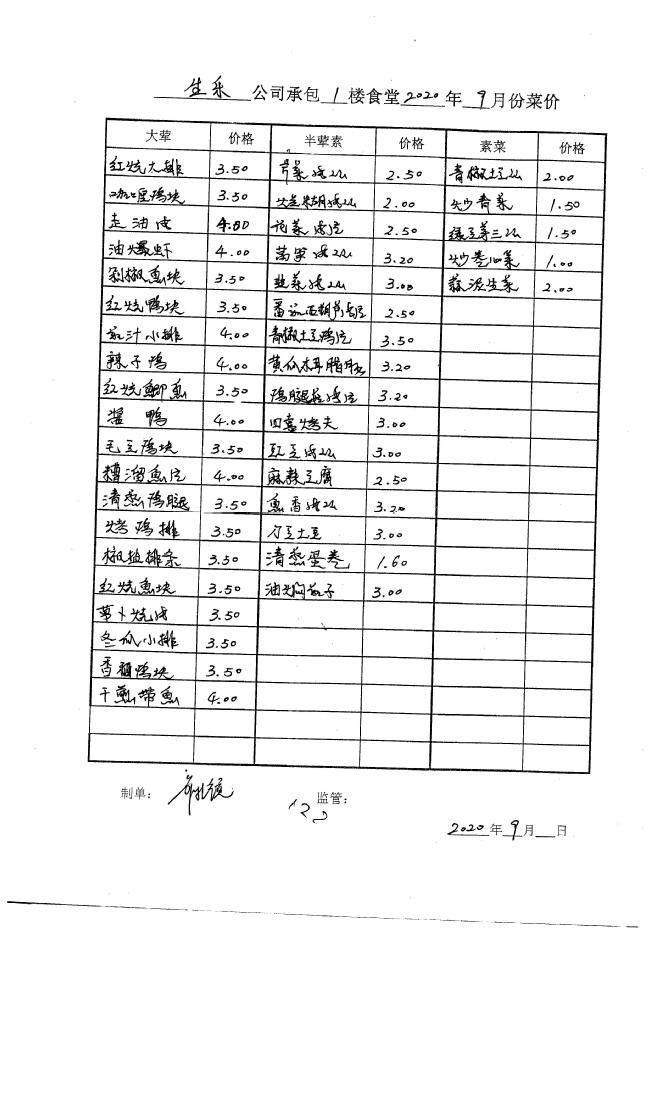 生乐 公司承包 1 楼食堂 2020 年 9 月份菜价
大荤 价格 半荤素 价格 素菜 价格
红烧大排 3.50 芹菜肉丝 2.50 青椒土豆丝 2.00
咖喱鸡块 3.50 2.00 炒青菜 1.50
走油肉 4.00 花菜肉片 2.50 绿豆芽三丝 1.50
油爆虾 4.00 莴笋肉丝 3.20 炒卷心菜 1.00
剁椒鱼块 3.50 韭菜肉丝 3.00 蒜泥生菜 2.00
红烧鸭块 3.50 2.50
茄汁小排 4.00 青椒土豆鸡片 3.50
辣子鸡 4.00 黄瓜木耳腊肠 3.20
红烧鲫鱼 3.50 鸡腿菇肉片 3.20
酱鸭 4.00 四喜烤夫 3.00
毛豆鸡块 3.50 豇豆肉丝 3.00
糟溜鱼片 4.00 麻辣豆腐 2.50
清蒸鸡腿 3.50 鱼香肉丝 3.20
烤鸡排 3.50 刀豆土豆 3.00
椒盐排条 3.50 清蒸蛋卷 1.60
红烧鱼块 3.50 油焖茄子 3.00
萝卜烧肉 3.50
冬瓜小排 3.50
香糟鸭块 3.50
干煎带鱼 4.00
制单： 监管：
2020 年 9 月 日